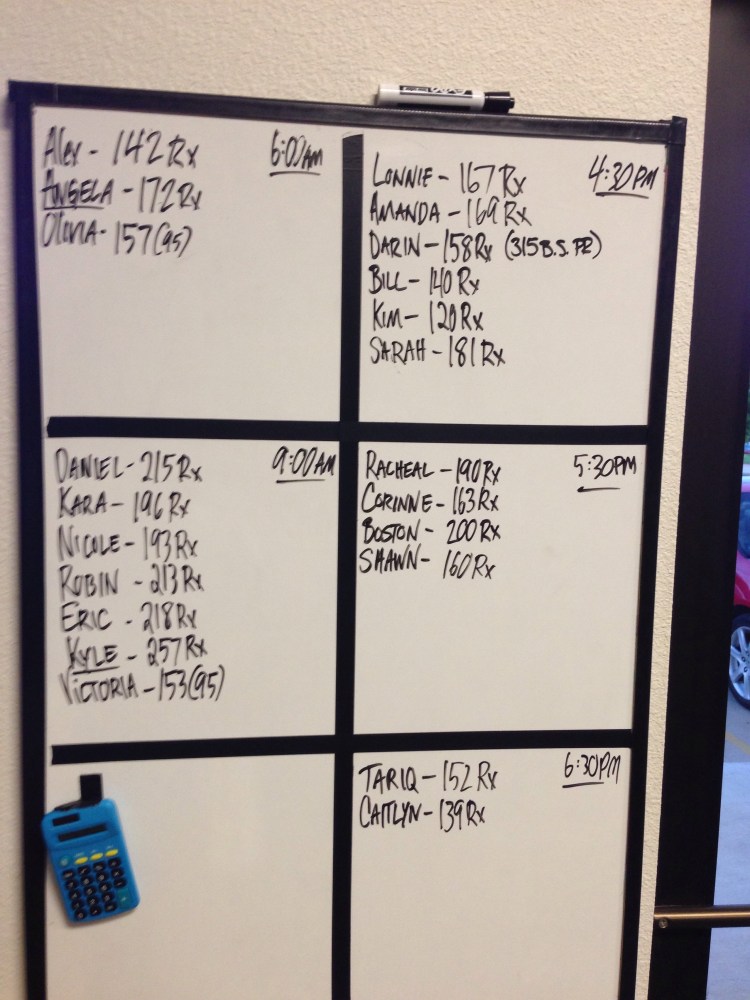 6:00AM
Alex - 142 Rx
ANGELA - 172 Rx
OliviA - 157 (95)
4:30 PM
LONNIE - 167 Rx
AMANDA - 169 Rx
DARIN - 158 Rx (315 B.S. PR)
BILL - 140 Rx
KIM - 120 Rx
SARAH - 181 Rx
9:00 AM
DANIEL - 215 Rx
KARA - 196 Rx
NICOLE - 193 Rx
ROBIN - 213 Rx
ERIC - 218 Rx
KYLE - 257 Rx
VICTORIA - 153 (95)
5:30PM
RACHEAL - 190 Rx
CORINNE - 163 Rx
BOSTON - 200 Rx
SHAWN - 160 Rx
6:30PM
TARIQ - 152 Rx
CAITLYN - 139 Rx